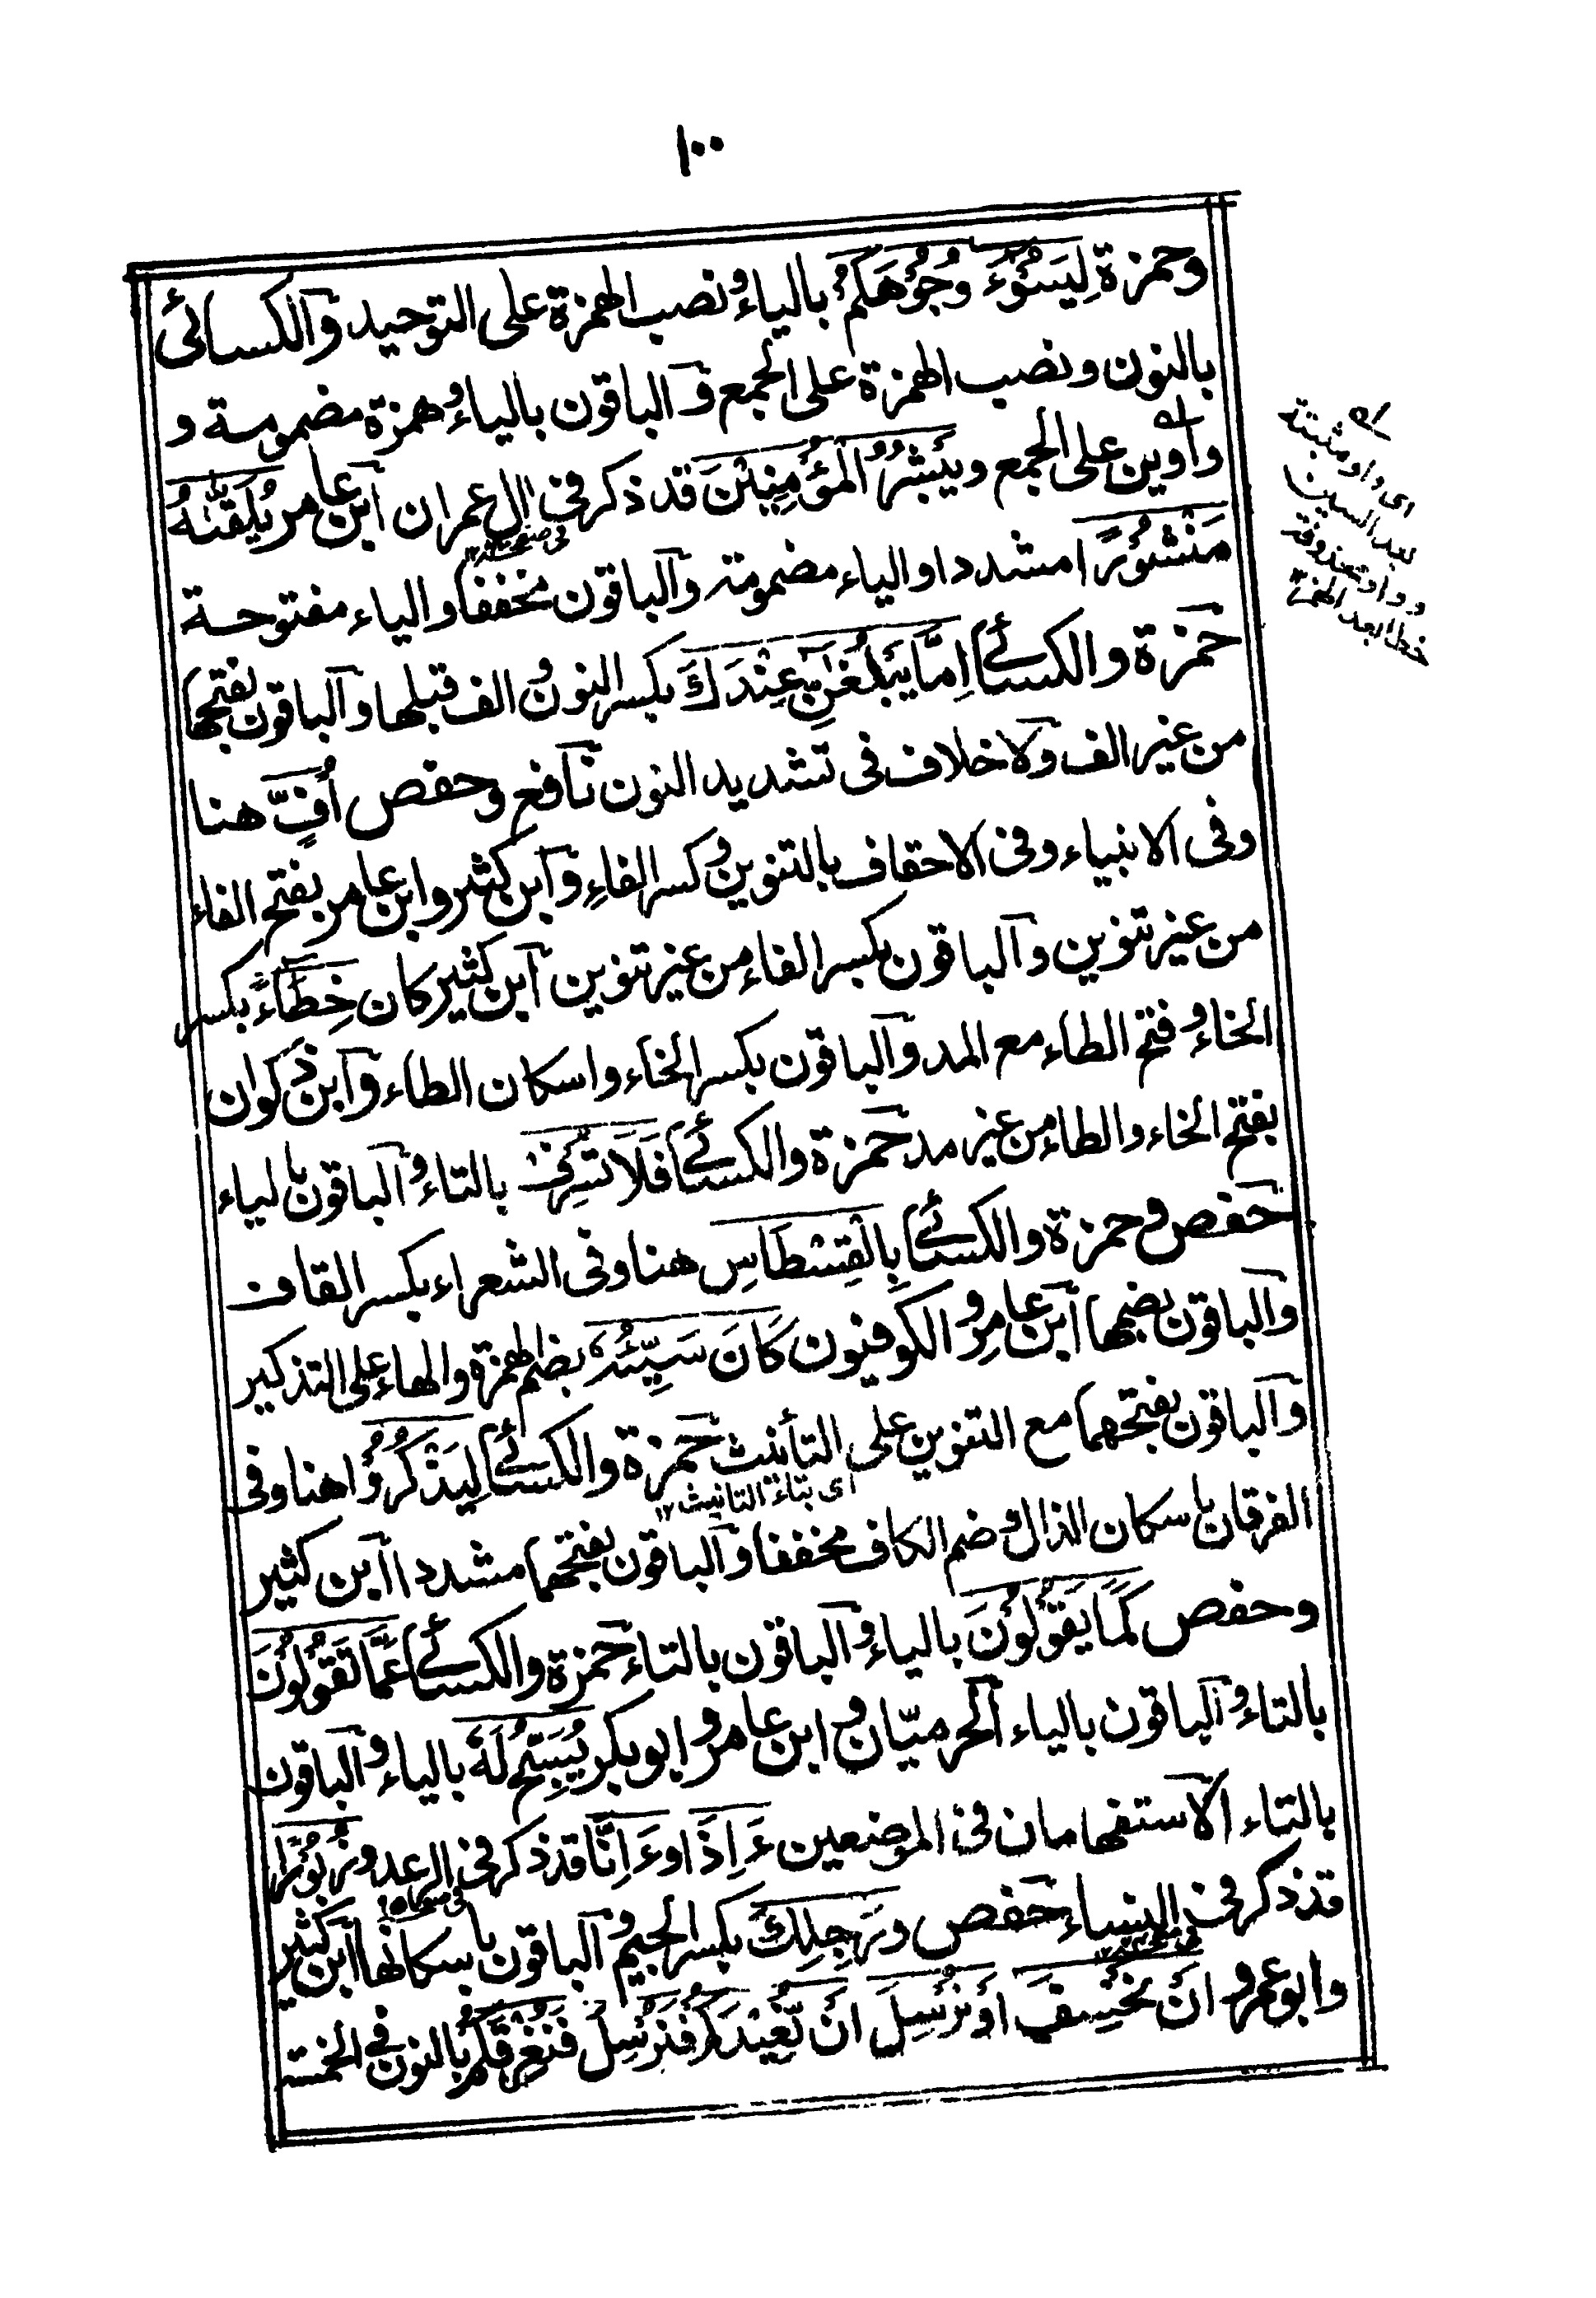 ١٠٠
وحمزة لِيَسُوْءَ وُجُوْهَكُمْ بالياء ونصب الهمزة على التوحيد والكسائى
بالنون ونصب الهمزة على الجمع والباقون بالياء وهمزة مضمومة و
واوين على الجمع ويَبْشُرُ الْمُؤْمِنِيْنَ قد ذكر فى ال عمران ابن عامر يُلَقّٰىهُ
مَنْشُوْرًا مشددا والياء مضمومة والباقون مخففا والياء مفتوحة
حمزة والكسائى اِمَّا يَبْلُغٰنِّ عِنْدَكَ بكسر النون والف قبلها والباقون بفتحها
من غير الف ولا خلاف فى تشديد النون نافع وحفص اُفٍّ هنا
وفى الانبياء وفى الاحقاف بالتنوين وكسر الفاء وابن كثير وابن عامر بفتح الفاء
من غير تنوين والباقون بكسر الفاء من غير تنوين ابن كثير كان خِطَآءً بكسر
الخاء وفتح الطاء مع المد والباقون بكسر الخاء واسكان الطاء وابن ذكوان
بفتح الخاء والطاء من غير مد حمزة والكسائى فَلَا تُسْرِفْ بالتاء والباقون بالياء
حفص وحمزة والكسائى بِالْقِسْطَاسِ هنا وفى الشعراء بكسر القاف
والباقون بضمها ابن عامر والكوفيون كَانَ سَيِّئُهٗ بضم الهمزة والهاء على التذكير
والباقون بفتحهما مع التنوين على التأنيث حمزة والكسائى لِيَذْكُرُوْا هنا وفى
اى بتاء التانيث ١٢
الفرقان باسكان الذال وضم الكاف مخففا والباقون بفتحهما مشددا ابن كثير
وحفص كَمَا يَقُوْلُوْنَ بالياء والباقون بالتاء حمزة والكسائى عَمَّا تَقُوْلُوْنَ
بالتاء والباقون بالياء الحرميّان وابن عامر وابو بكر يُسَبِّحُ لَهٗ بالياء والباقون
بالتاء الاستفهامان فى الموضعين ءَاِذَا وءَاِنَّا قد ذكر فى الرعد وزُبُوْرًا
قد ذكر فى النساء حفص ورَجِلِكَ بكسر الجيم والباقون باسكانها ابن كثير
وابو عمرو اَنْ نَخْسِفَ اَوْ نُرْسِلَ اَنْ نُّعِيْدَكُمْ فَنُرْسِلَ فَنُغْرِقَكُمْ بالنون فى الخمسة
اى واو مثبتة
بعد السين
وواو محذوفة
خطا بعد الهمزة